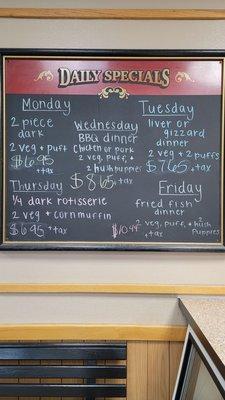 DAILY SPECIALS
Monday
2 piece
dark
2 veg + puff
$6.95
+tax
Wednesday
BBQ dinner
Chicken or pork
2 veg, puff, +
$8.65 +tax
Tuesday
liver or
gizzard
dinner
2 veg + 2 puffs
$7.65 +tax
Thursday
1/4 dark rotisserie
2 veg + cornmuffin
$6.95 +tax
Friday
fried fish
dinner
2 veg, puff, + 2 hush
puppies
$10.49 +tax